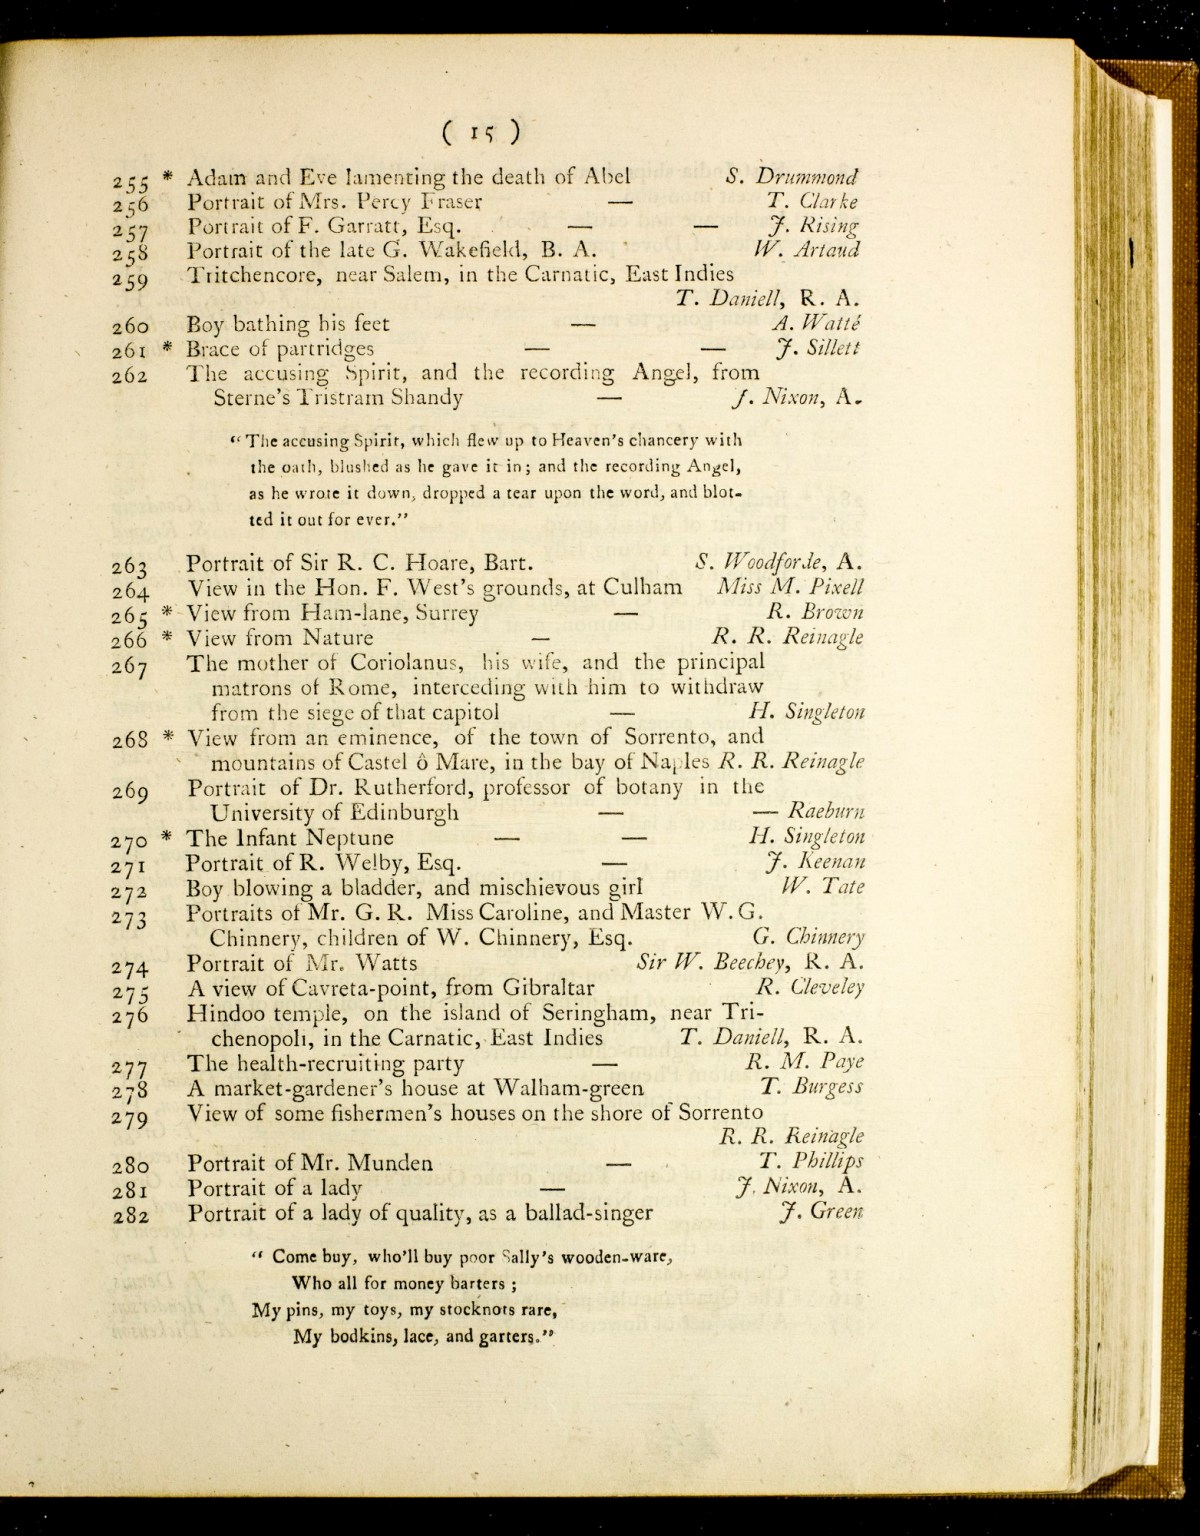 ( 15 )
255 * Adam and Eve lamenting the death of Abel S. Drummond
256 Portrait of Mrs. Percy Fraser — T. Clarke
257 Portrait of F. Garratt, Esq. — — J. Rising
258 Portrait of the late G. Wakefield, B. A. W. Artaud
259 Tritchencore, near Salem, in the Carnatic, East Indies
T. Daniell, R. A.
260 Boy bathing his feet — A. Watté
261 * Brace of partridges — — J. Sillett
262 The accusing Spirit, and the recording Angel, from
Sterne's Tristram Shandy — J. Nixon, A.
“ The accusing Spirit, which flew up to Heaven's chancery with
the oath, blushed as he gave it in; and the recording Angel,
as he wrote it down, dropped a tear upon the word, and blot-
ted it out for ever.”
263 Portrait of Sir R. C. Hoare, Bart. S. Woodforde, A.
264 View in the Hon. F. West's grounds, at Culham Miss M. Pixell
265 * View from Ham-lane, Surrey — R. Brown
266 * View from Nature — R. R. Reinagle
267 The mother of Coriolanus, his wife, and the principal
matrons of Rome, interceding with him to withdraw
from the siege of that capitol — H. Singleton
268 * View from an eminence, of the town of Sorrento, and
mountains of Castel ô Mare, in the bay of Naples R. R. Reinagle
269 Portrait of Dr. Rutherford, professor of botany in the
University of Edinburgh — — Raeburn
270 * The Infant Neptune — — H. Singleton
271 Portrait of R. Welby, Esq. — J. Keenan
272 Boy blowing a bladder, and mischievous girl W. Tate
273 Portraits of Mr. G. R. Miss Caroline, and Master W. G.
Chinnery, children of W. Chinnery, Esq. G. Chinnery
274 Portrait of Mr. Watts Sir W. Beechey, R. A.
275 A view of Cavreta-point, from Gibraltar R. Cleveley
276 Hindoo temple, on the island of Seringham, near Tri-
chenopoli, in the Carnatic, East Indies T. Daniell, R. A.
277 The health-recruiting party — R. M. Paye
278 A market-gardener's house at Walham-green T. Burgess
279 View of some fishermen's houses on the shore of Sorrento
R. R. Reinagle
280 Portrait of Mr. Munden — T. Phillips
281 Portrait of a lady — J. Nixon, A.
282 Portrait of a lady of quality, as a ballad-singer J. Green
“ Come buy, who'll buy poor Sally's wooden-ware,
Who all for money barters ;
My pins, my toys, my stocknots rare,
My bodkins, lace, and garters.”